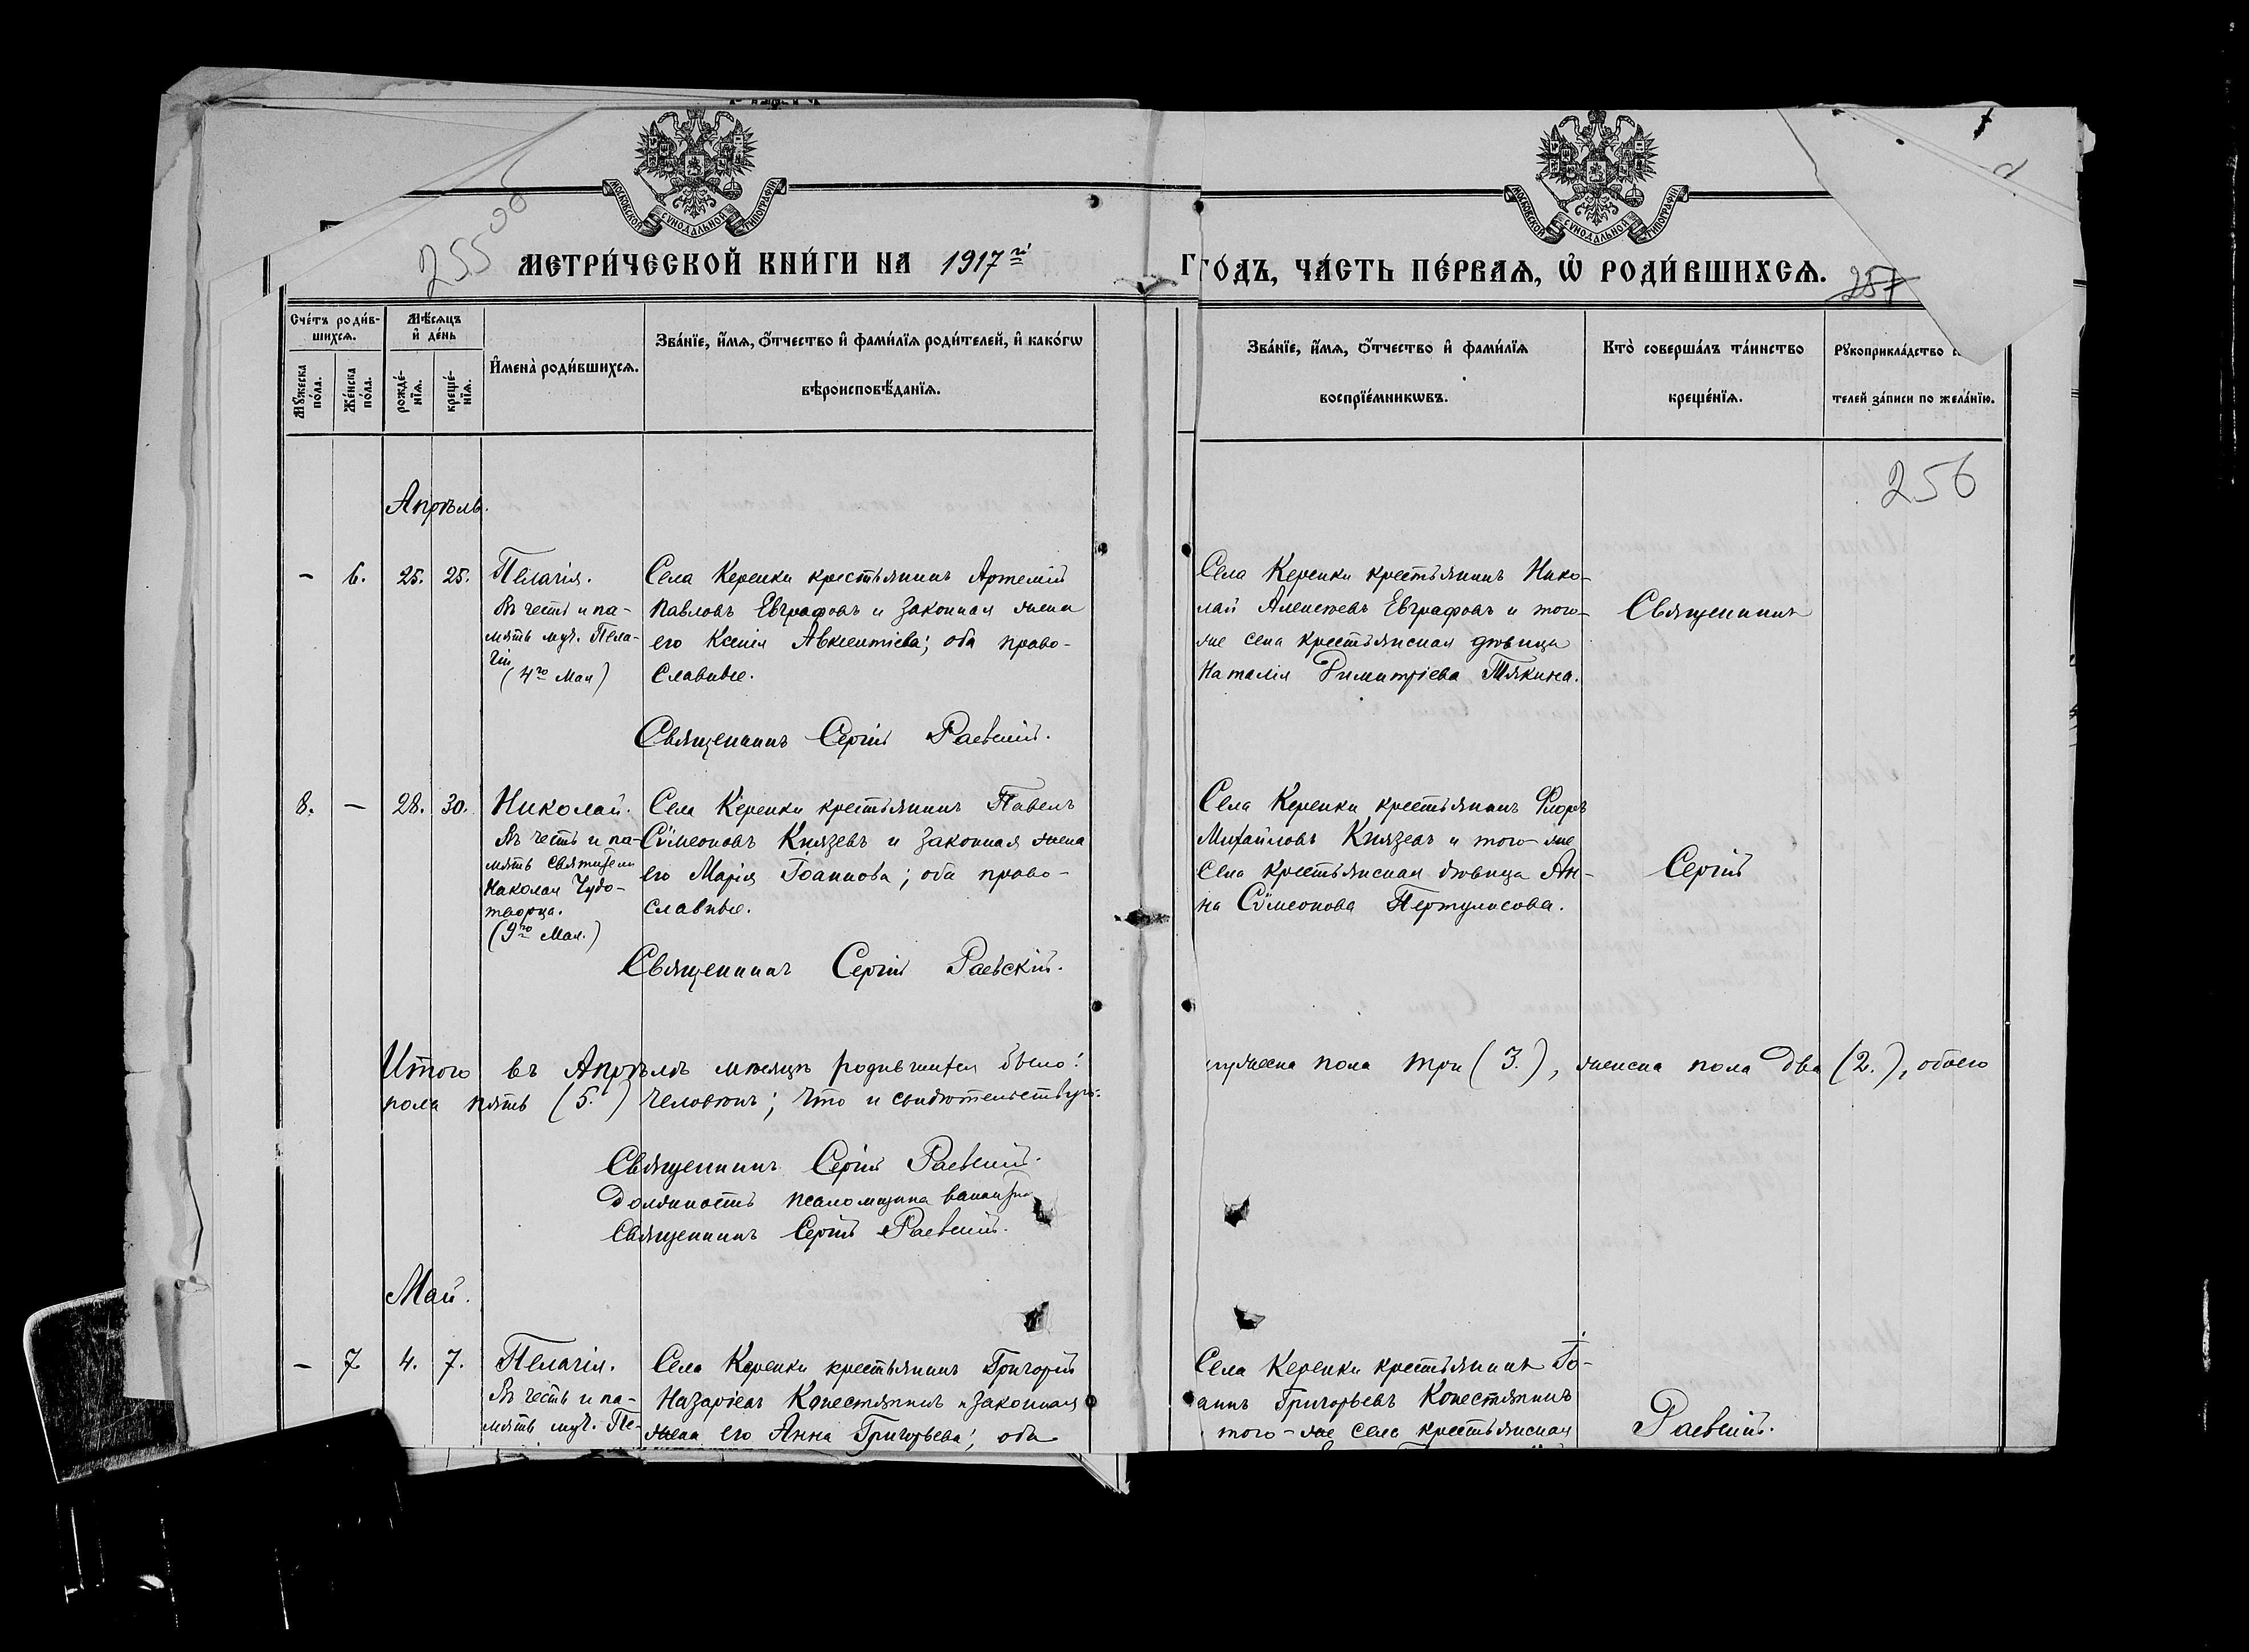 МОСКОВСКОЙ СУНОДАЛЬНОЙ ТИПОГРАФІИ
МОСКОВСКОЙ СУНОДАЛЬНОЙ ТИПОГРАФІИ
255
МЕТРИ́ЧЕСКОЙ КНИ́ГИ НА 1917й
ГО́ДЪ, ЧА́СТЬ ПЕ́РВАѦ, Ѽ РОДИ́ВШИХСѦ.
257
Сче́тъ роди́в-
шихсѧ.
Мѣ́сѧцъ
и҆ де́нь
Мꙋ́жеска
по́ла.
Же́нска
по́ла.
рожде́-
нїѧ.
креще́-
нїѧ.
И҆мена̀ роди́вшихсѧ.
Зва́нїе, и҆́мѧ, ѻ҆́тчество и҆ фами́лїѧ роди́телей, и҆ како́гѡ
вѣроисповѣ́данїѧ.
Зва́нїе, и҆́мѧ, ѻ҆́тчество и҆ фами́лїѧ
воспрїе́мникѡвъ.
Кто̀ соверша́лъ та́инство
креще́нїѧ.
Рꙋкоприкла́дство
телей за́писи по жела́нїю.
256
Апрѣль.
– 6. 25. 25.
Пелагія.
Въ честь и па-
мять муч. Пела-
гіи
(4го Мая)
Села Керенки крестьянинъ Артемій
Павловъ Евграфовъ и законная жена
его Ксенія Авксентіева; оба право-
славные.
Села Керенки крестьянинъ Нико-
лай Алексѣевъ Евграфовъ и того-
же села крестьянская дѣвица
Наталія Димитріева Тякина.
Священникъ
Священникъ Сергій Раевскій.
8. – 28. 30.
Николай.
Въ честь и па-
мять Святителя
Николая Чудо-
творца.
(9го Мая.)
Села Керенки крестьянинъ Павелъ
Сѵмеоновъ Князевъ и законная жена
его Марія Іоаннова; оба право-
славные.
Села Керенки крестьянинъ Флоръ
Михайловъ Князевъ и того-же
села крестьянская дѣвица Ан-
на Сѵмеонова
Сергій
Священникъ Сергій Раевскій.
Итого въ Апрѣлѣ мѣсяцѣ родившихся было:
мужеска пола три (3.), женска пола два (2.), обоего
пола пять (5.) человѣкъ; что и свидѣтельствую:
Священникъ Сергій Раевскій.
Должность псаломщика вакантна
Священникъ Сергій Раевскій.
Май.
– 7. 4. 7.
Пелагія.
Въ честь и па-
мять муч. Пе-
Села Керенки крестьянинъ Григорій
Назаріевъ и законная
жена его Анна Григорьева; оба
Села Керенки крестьянинъ Іо-
аннъ Григорьевъ
того-же села крестьянская
Раевскій.